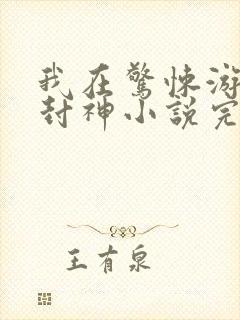 我在驚悚游
封神小說完
王有泉